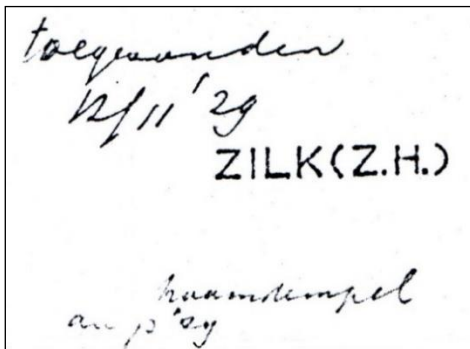 toegezonden
12/11 '29
ZILK (Z.H.)
naamstempel
'29